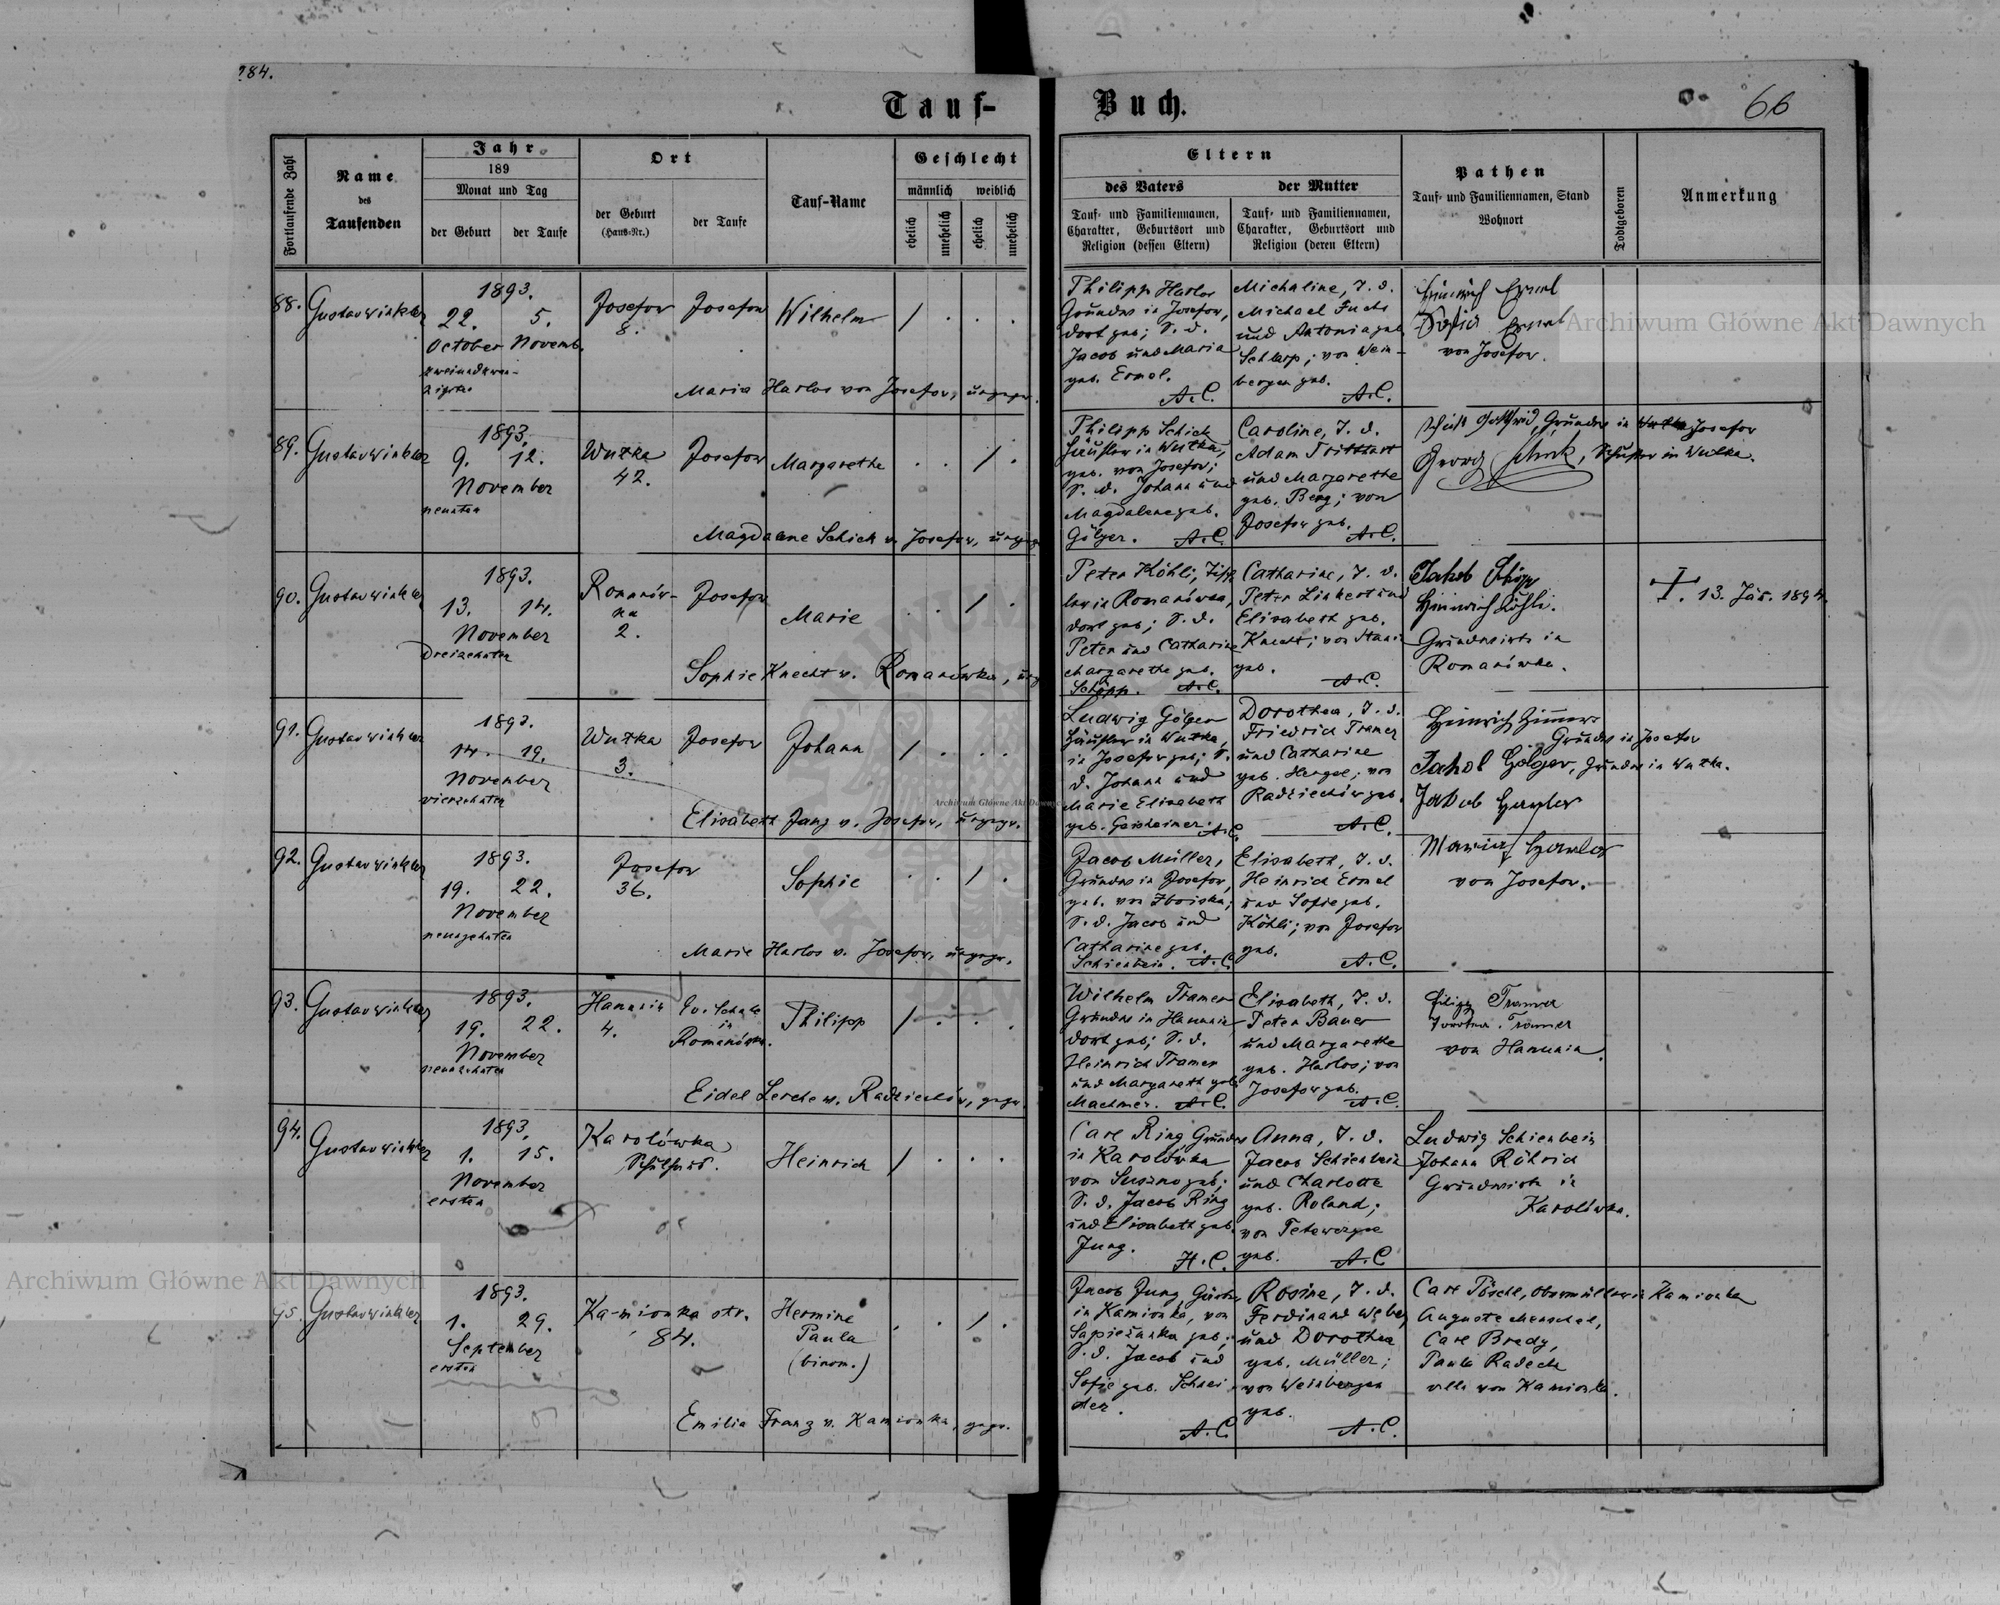 284.
Tauf-Buch.
66
Fortlaufende Zahl
Name
des
Taufenden
Jahr
189
Monat und Tag
der Geburt
der Taufe
Ort
der Geburt
(Haus-Nr.)
der Taufe
Tauf-Name
Geschlecht
männlich
weiblich
ehelich
unehelich
ehelich
unehelich
Eltern
des Vaters
Tauf- und Familiennamen,
Charakter, Geburtsort und
Religion (dessen Eltern)
der Mutter
Tauf- und Familiennamen,
Charakter, Geburtsort und
Religion (deren Eltern)
Pathen
Tauf- und Familiennamen, Stand
Wohnort
Todtgeboren
Anmerkung
88.
Gustav Winkler
1893.
22.
5.
October
Novemb.
Josefow
8.
Josefow
Wilhelm
/
Maria Harlos von Josefow,
Philipp Harlos
Grundw in Josefow,
dort geb; S. d.
Jacob und Maria
geb. Ermel.
A.C.
Michaline, T. d.
Michael Fuchs
und Antonia geb.
von Wein-
bergen geb.
A.C.
Heinrich Ermel
Sofia Ermel
von Josefow.
89.
Gustav Winkler
1893.
9.
12.
November
neunten
Wutka
42.
Josefow
Margarethe
/
Magdalene Schick v. Josefow,
Philipp Schick
Häusler in Wutka,
geb. von Josefow;
S. d. Johann und
Magdalene geb.
Gölger.
A.C.
Caroline, T. d.
Adam
und Margarethe
geb. Berg; von
Josefow geb.
A.C.
Gottfried, Grundw in Josefow
Georg Schick, Schuster in Wulka.
90.
Gustav Winkler
1893.
13.
14.
November
Dreizehnten
Romanów-
ka
2.
Josefow
Marie
/
Sophie Knecht v. Romanówka,
Peter Köhli,
in Romanówka,
dort geb; S. d.
Peter und Catharine
Margarethe geb.
Schöpp.
A.C.
Catharine, T. d.
Peter Linkert und
Elisabeth geb.
Knecht; von
geb.
A.C.
Jakob
Heinrich Köhli.
Grundwirte in
Romanówka.
13. Jän. 1894.
91.
Gustav Winkler
1893.
14.
19.
November
vierzehnten
Wutka
3.
Josefow
Johann
/
Elisabeth Jung v. Josefow,
Ludwig Gölger
Häusler in Wutka,
in Josefow geb; S.
d. Johann und
Marie Elisabeth
geb. Geisheimer.
A.C.
Dorothea, T. d.
Friedrich Tramer
und Catharine
geb. Hengel; von
Radziechów geb.
A.C.
Heinrich Zimmer
Grundw in Josefow
Jakob Gölger, Grundw in Wutka.
92.
Gustav Winkler
1893.
19.
22.
November
neunzehnten
Josefow
36.
Sophie
/
Marie Harlos v. Josefow,
Jacob Müller,
Grundw in Josefow,
geb. von
S. d. Jacob und
Catharine geb.
Schienbein.
A.C.
Elisabeth, T. d.
Heinrich Ermel
und Sofie geb.
Köhli; von Josefow
geb.
A.C.
Jakob Harlos
Maria Harlos
von Josefow.
93.
Gustav Winkler
1893.
19.
22.
November
neunzehnten
Hanunin
4.
Ev. Schule
in
Romanówka.
Philipp
/
Eidel Lerche v. Radziechów,
Wilhelm Tramer
Grundw in Hanunin
dort geb; S. d.
Heinrich Tramer
und Margareth geb.
Machmer.
A.C.
Elisabeth, T. d.
Peter Bauer
und Margarethe
geb. Harlos; von
Josefow geb.
A.C.
Filipp Tramer
Dorothea Tramer
von Hanunin.
94.
Gustav Winkler
1893.
1.
15.
November
ersten
Karolówka
Heinrich
/
Carl Ring, Grundw
in Karolówka
von Suszno geb;
S. d. Jacob Ring
und Elisabeth geb.
Jung.
H.C.
Anna, T. d.
Jacob Schienbein
und Charlotte
geb. Roland;
von
geb.
A.C.
Ludwig Schienbein
Johann Röhrich
Grundwirte in
Karolówka.
95.
Gustav Winkler
1893.
1.
29.
September
ersten
Kamionka str.
84.
Hermine
Paula
(binom.)
/
Emilia Franz v. Kamionka,
Jacob Jung
in Kamionka, von
Sapieżanka geb.;
S. d. Jacob und
Sofie geb. Schnei-
der.
A.C.
Rosine, T. d.
Ferdinand Weber
und Dorothea
geb. Müller;
von Weinbergen
geb.
A.C.
Carl Pösche, Obermüller in Kamionka
Auguste Menschel,
Carl Bredy,
Paula Radecka
alle von Kamionka.
Archiwum Główne Akt Dawnych
Archiwum Główne Akt Dawnych
Archiwum Główne Akt Dawnych